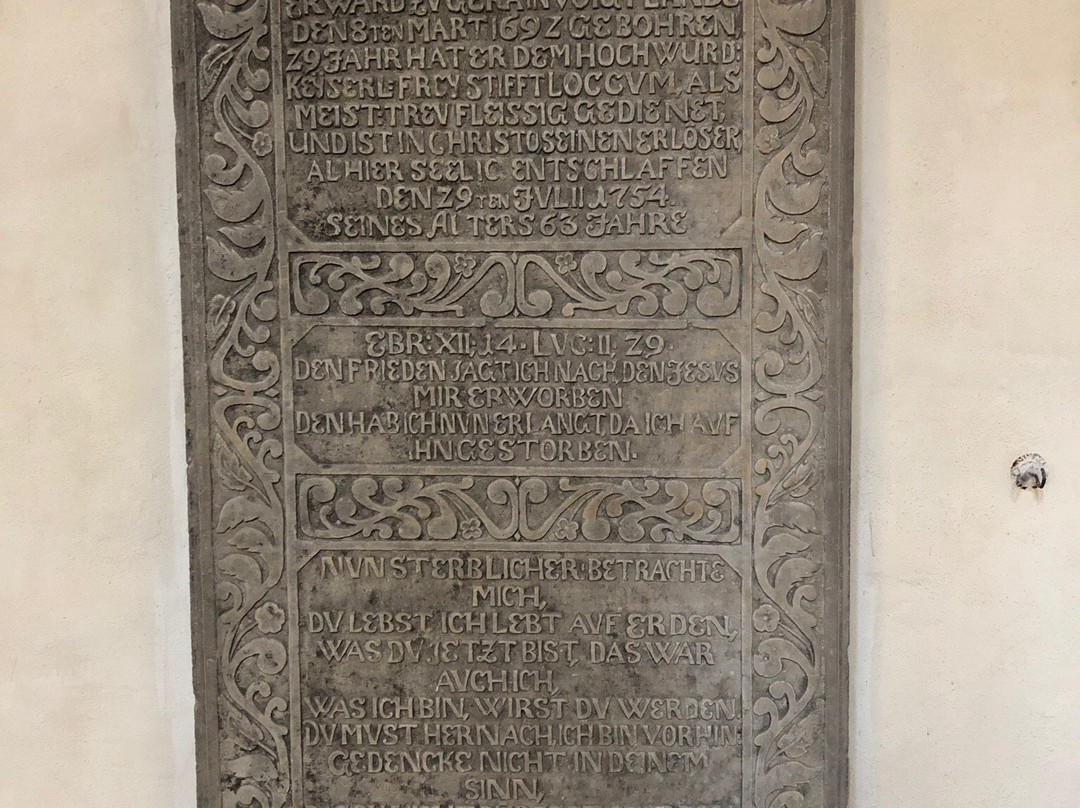 ER WARD ZU GERA IN VOIGTLANDE
DEN 8TEN MART 1692 GEBOHREN,
29 JAHR HAT ER DEM HOCHWURD:
KEYSERL: FREY STIFFT LOCCVM, ALS
MEIST: TREV FLEISSIG GEDIENET,
UND IST IN CHRISTO SEINEN ERLÖSER,
ALHIER SEELIG ENTSCHLAFFEN
DEN 29TEN JVLII 1754.
SEINES ALTERS 63 JAHRE
EBR: XII, 14. LVC: II, 29.
DEN FRIEDEN JAGT ICH NACH, DEN JESVS
MIR ERWORBEN
DEN HAB ICH NVN ERLANGT, DA ICH AVF
IHN GESTORBEN.
NVN STERBLICHER BETRACHTE
MICH,
DV LEBST ICH LEBT AVF ERDEN,
WAS DV JETZT BIST, DAS WAR
AVCH ICH,
WAS ICH BIN, WIRST DV WERDEN.
DV MVST HERNACH, ICH BIN VORHIN.
GEDENCKE NICHT IN DEINEM
SINN,